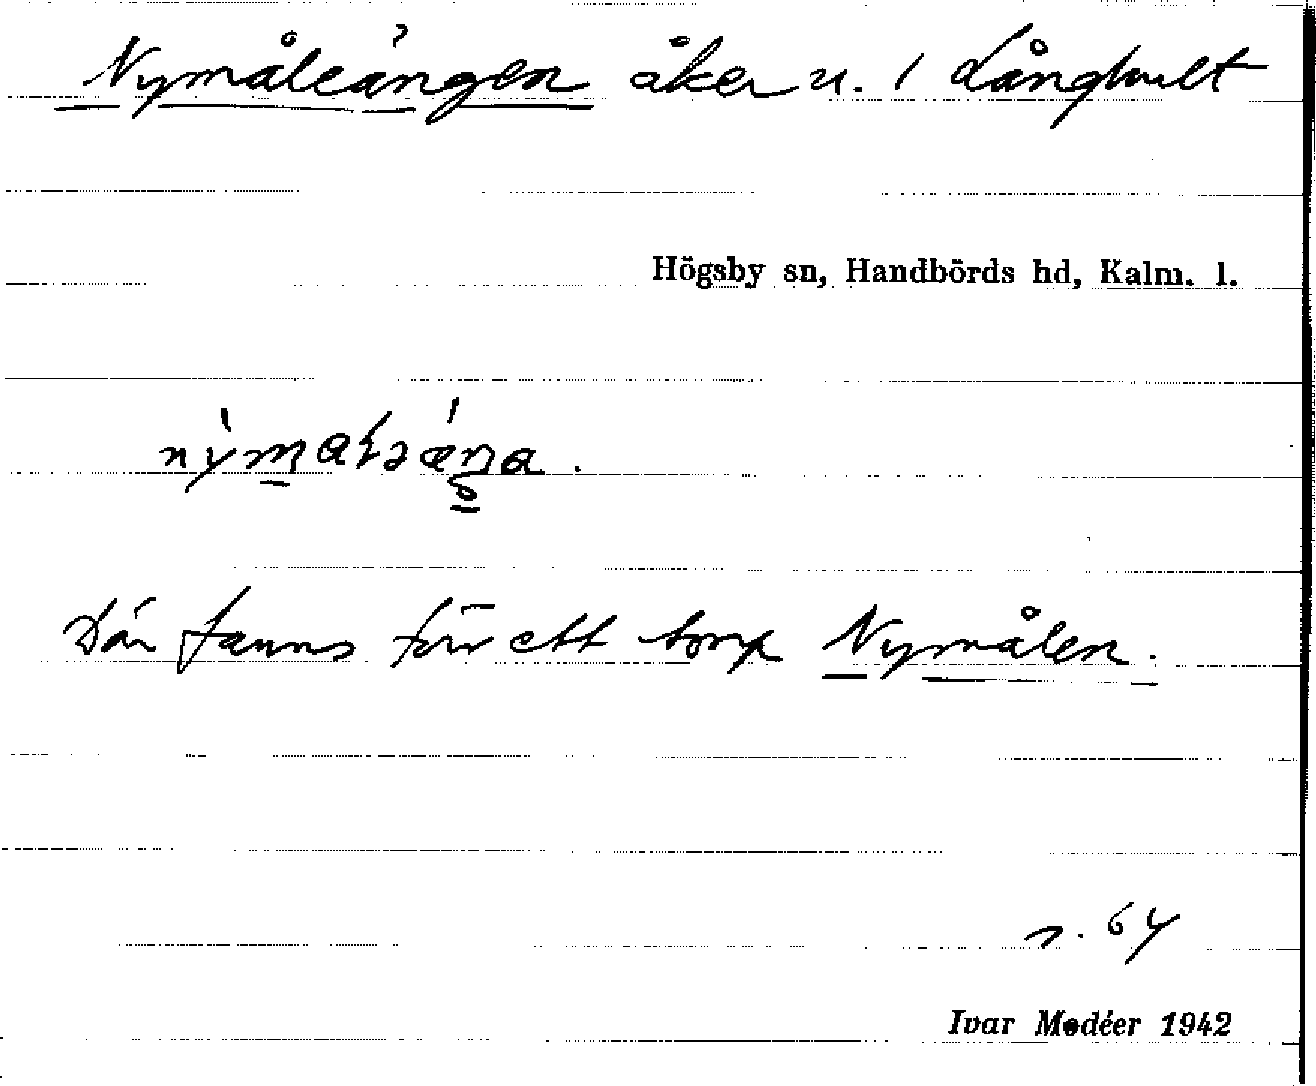 Nymåleängen åker u. 1 Långhult
Högsby sn, Handbörds hd, Kalm. l.
Där fanns förr ett torp Nymålen.
n. 64
Ivar Modéer 1942